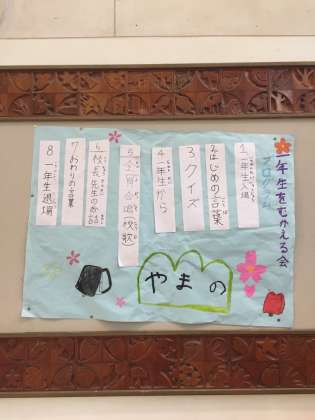 一年生をむかえる会
プログラム
1 一年生入場
2 はじめの言葉
3 クイズ
4 一年生から
5
6 校長先生のお話
7 おわりの言葉
8 一年生退場
やまの